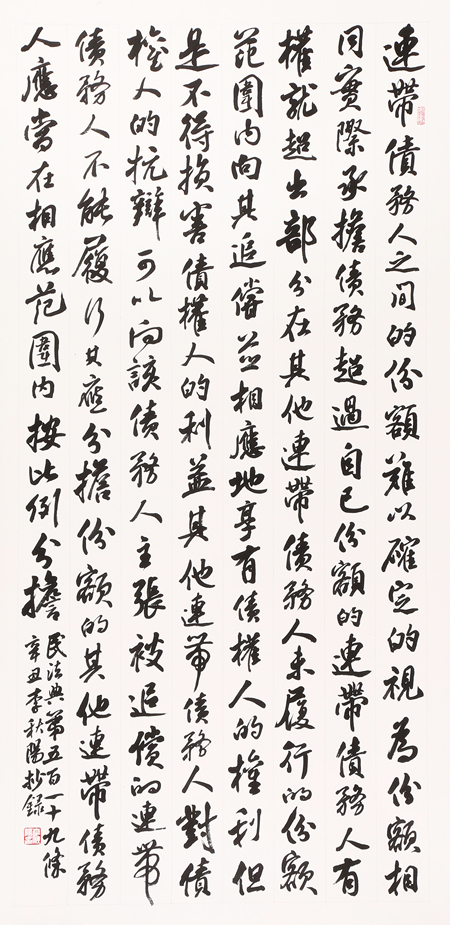 連帶債務人之間的份額難以確定的視為份額相
同實際承擔債務超過自己份額的連帶債務人有
權就超出部分在其他連帶債務人未履行的份額
范圍内向其追償並相應地享有債權人的權利但
是不得損害債權人的利益其他連帶債務人對債
權人的抗辯可以向該債務人主張被追償的連帶
債務人不能履行其應分擔份額的其他連帶債務
人應當在相應范圍内按比例分擔
民法典第五百一十九條
辛丑李秋陽抄録